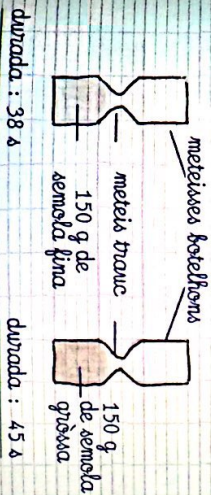 meteisses botelhons
meteis trauc
150 g de
semola fina
150 g
de semola
gròssa
durada : 38 s
durada : 45 s